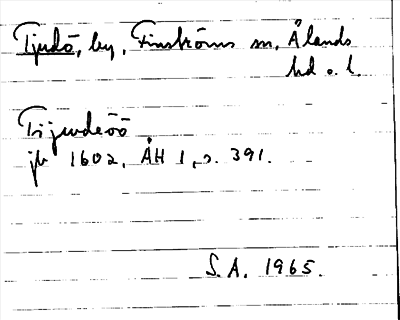 Tjudö, by, Finströms sn, Ålands
hd o. l.
Tijwdeöö
jb 1602, ÅH 1, s. 391.
S.A. 1965.